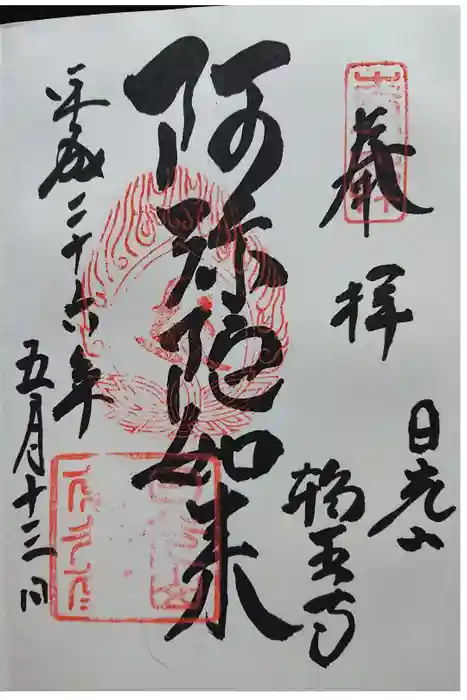 奉拝
日光山
輪王寺
阿弥陀如来
平成二十六年
五月十三日